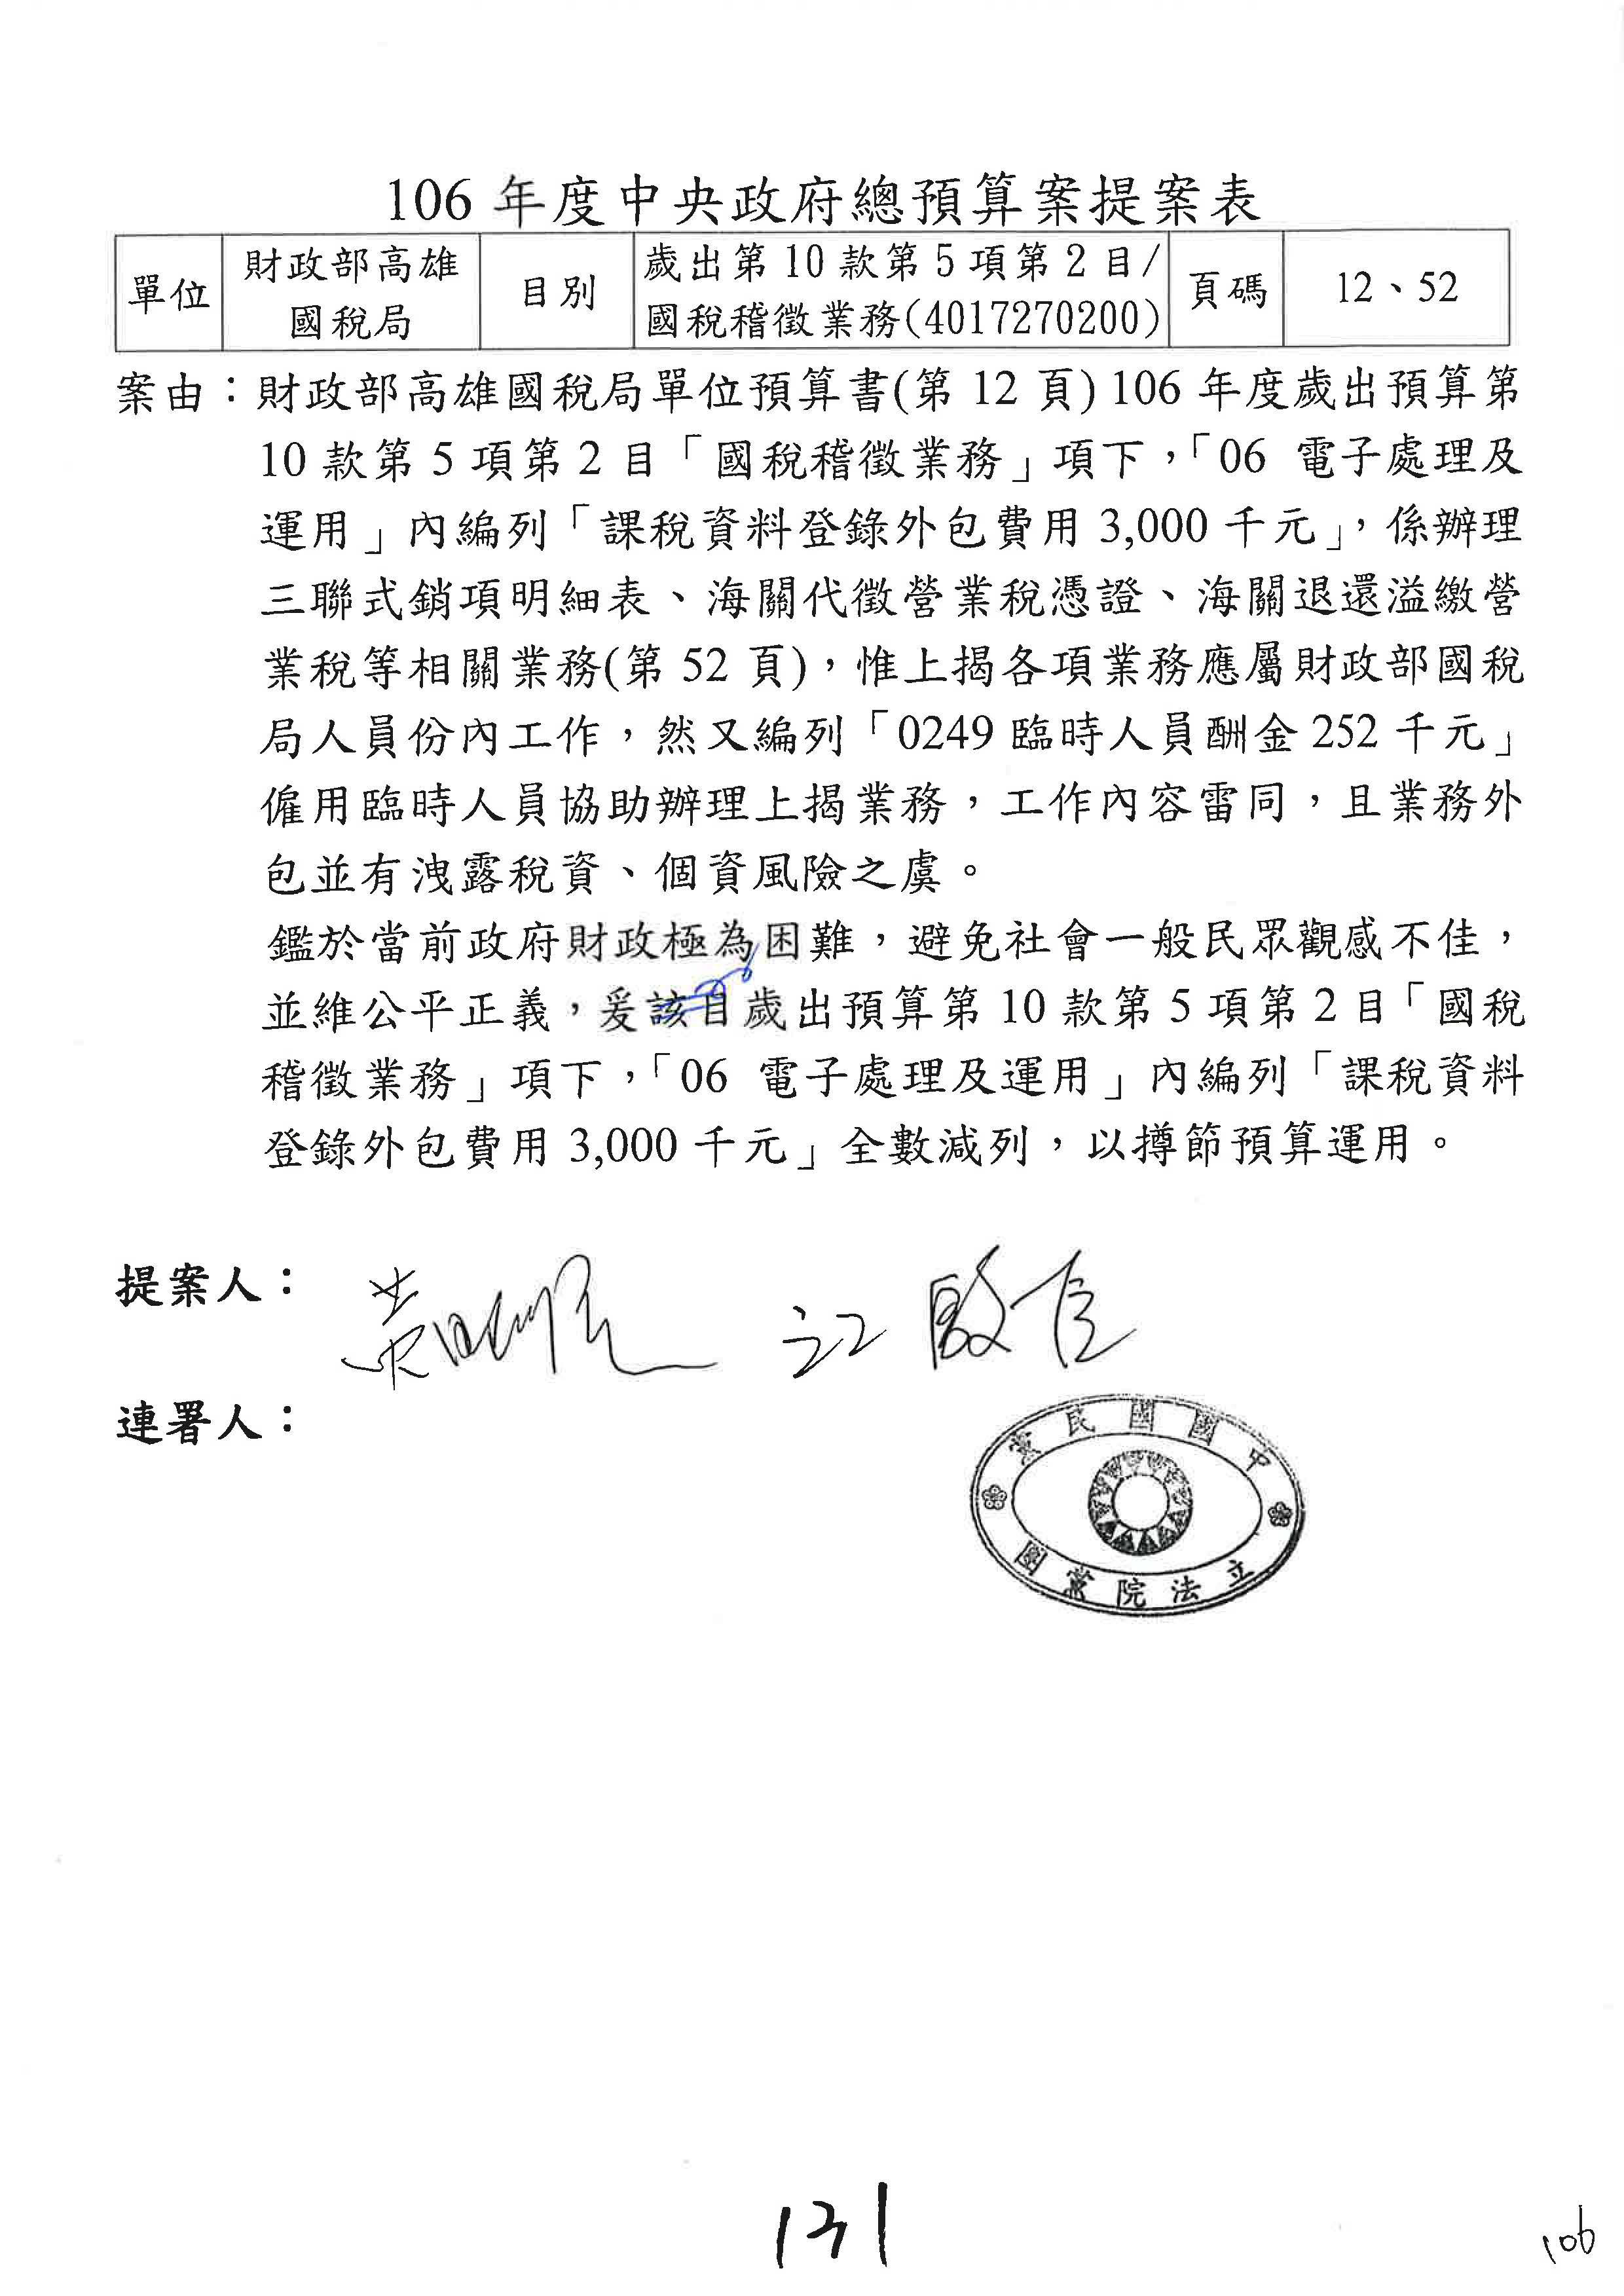 106 年度中央政府總預算案提案表
單位 財政部高雄國稅局 目別 歲出第 10 款第 5 項第 2 目/國稅稽徵業務(4017270200) 頁碼 12、52
案由：財政部高雄國稅局單位預算書(第 12 頁) 106 年度歲出預算第
10 款第 5 項第 2 目「國稅稽徵業務」項下，「06 電子處理及
運用」內編列「課稅資料登錄外包費用 3,000 千元」，係辦理
三聯式銷項明細表、海關代徵營業稅憑證、海關退還溢繳營
業稅等相關業務(第 52 頁)，惟上揭各項業務應屬財政部國稅
局人員份內工作，然又編列「0249 臨時人員酬金 252 千元」
僱用臨時人員協助辦理上揭業務，工作內容雷同，且業務外
包並有洩露稅資、個資風險之虞。
鑑於當前政府財政極為困難，避免社會一般民眾觀感不佳，
並維公平正義，爰該目歲出預算第 10 款第 5 項第 2 目「國稅
稽徵業務」項下，「06 電子處理及運用」內編列「課稅資料
登錄外包費用 3,000 千元」全數減列，以撙節預算運用。
提案人：
江啟臣
連署人：
中國國民黨
立法院黨團
131
106